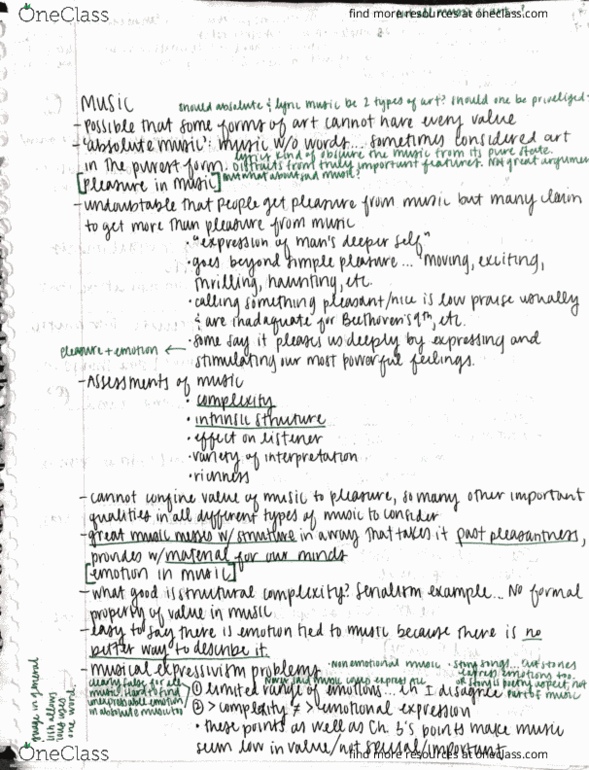 OneClass
find more resources at oneclass.com
MUSIC
should absolute & lyric music be 2 types of art? should one be privileged?
- possible that some forms of art cannot have every value
- "absolute music": music w/o words... sometimes considered art
in the purest form.
lyrics kind of obscure the music from its pure state.
distracts from truly important features. Not great argument
[pleasure in music]
but what about sad music?
- undoubtable that people get pleasure from music but many claim
to get more than pleasure from music
• "expression of man's deeper self"
• goes beyond simple pleasure... "moving, exciting,
thrilling, haunting, etc.
• calling something pleasant/nice is low praise usually
& are inadaquate for Beethoven's 9th, etc.
• some say it pleases us deeply by expressing and
pleasure + emotion ←
stimulating our most powerful feelings.
- Assessments of music
• complexity
• intrinsic structure
• effect on listener
• variety of interpretation
• richness
- cannot confine value of music to pleasure, so many other important
qualities in all different types of music to consider
- great music messes w/ structure in a way that takes it past pleasantness,
provides w/ material for our minds
[emotion in music]
- what good is structural complexity? Serialism example... No formal
property of value in music
- easy to say there is emotion tied to music because there is no
better way to describe it.
- musical expressivism problems
• Non emotional music
• story songs... but stones
express emotions too.
poetry aspect, not
part of music
clearly false for all
music. Hard to find
emotion
in absolute music too
① limited range of emotions... eh I disagree
② > complexity ≠ > emotional expression
• these points as well as Ch. 3's points make music
seem low in value/not special/important
in general
allows
one word
OneClass
find more resources at oneclass.com